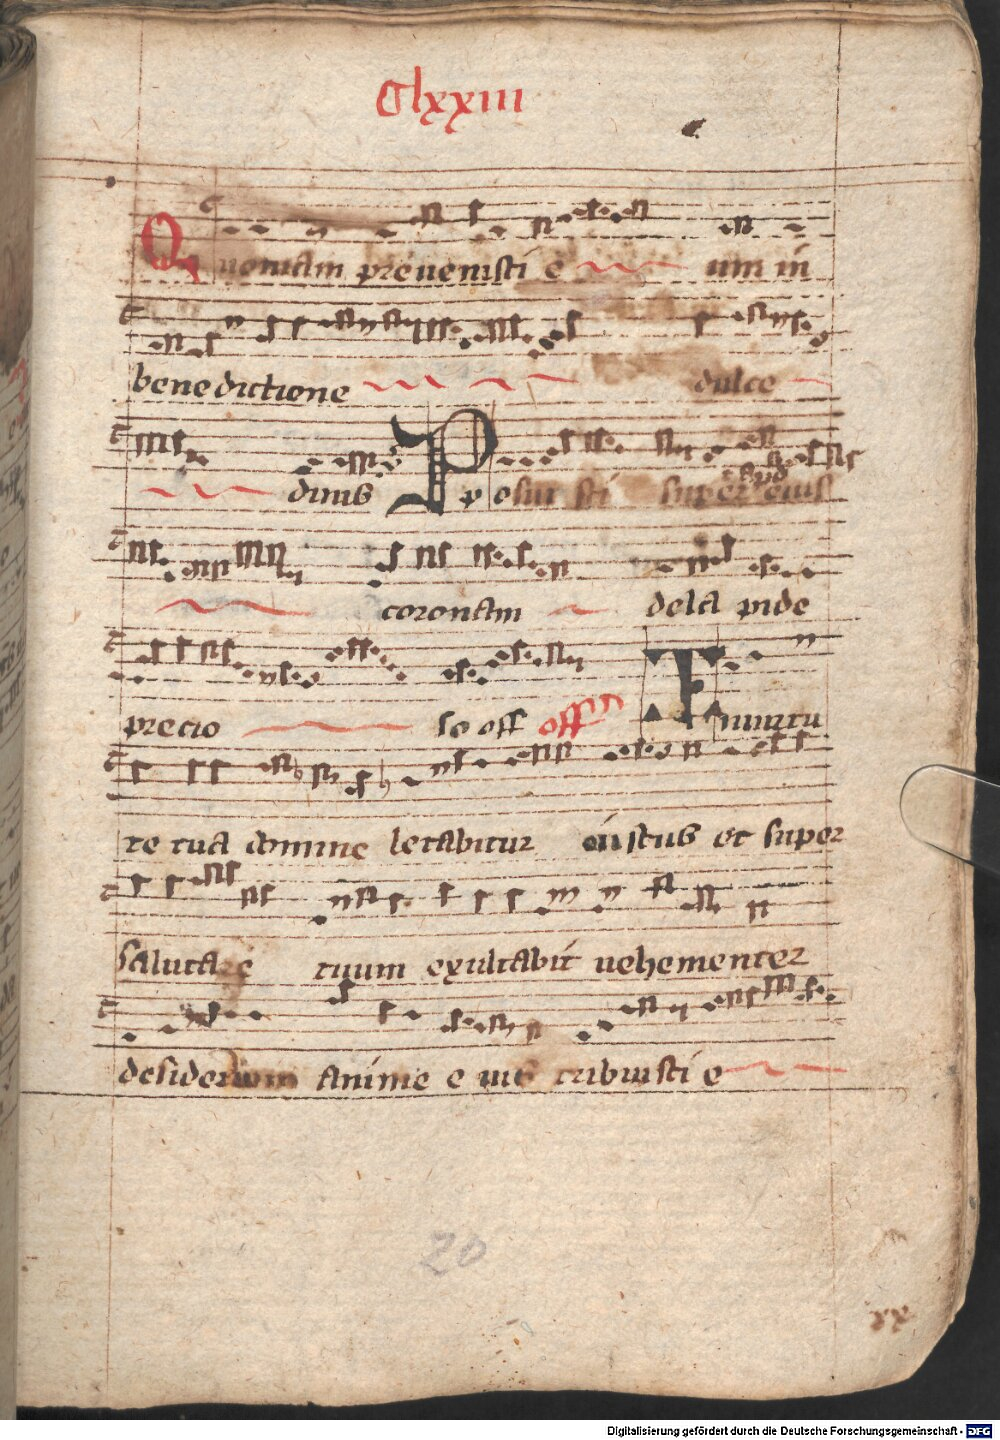 Clxxiii
Quoniam prevenisti e um in
benedictione dulce
dinis Posui sti super eius
coronam de la pide
precio so off off
In virtu
te tua domine letabitur iustus et super
salutare tuum exultabit vehementer
desiderium anime e ius tribuisti e
20
xx
Digitalisierung gefördert durch die Deutsche Forschungsgemeinschaft - DFG